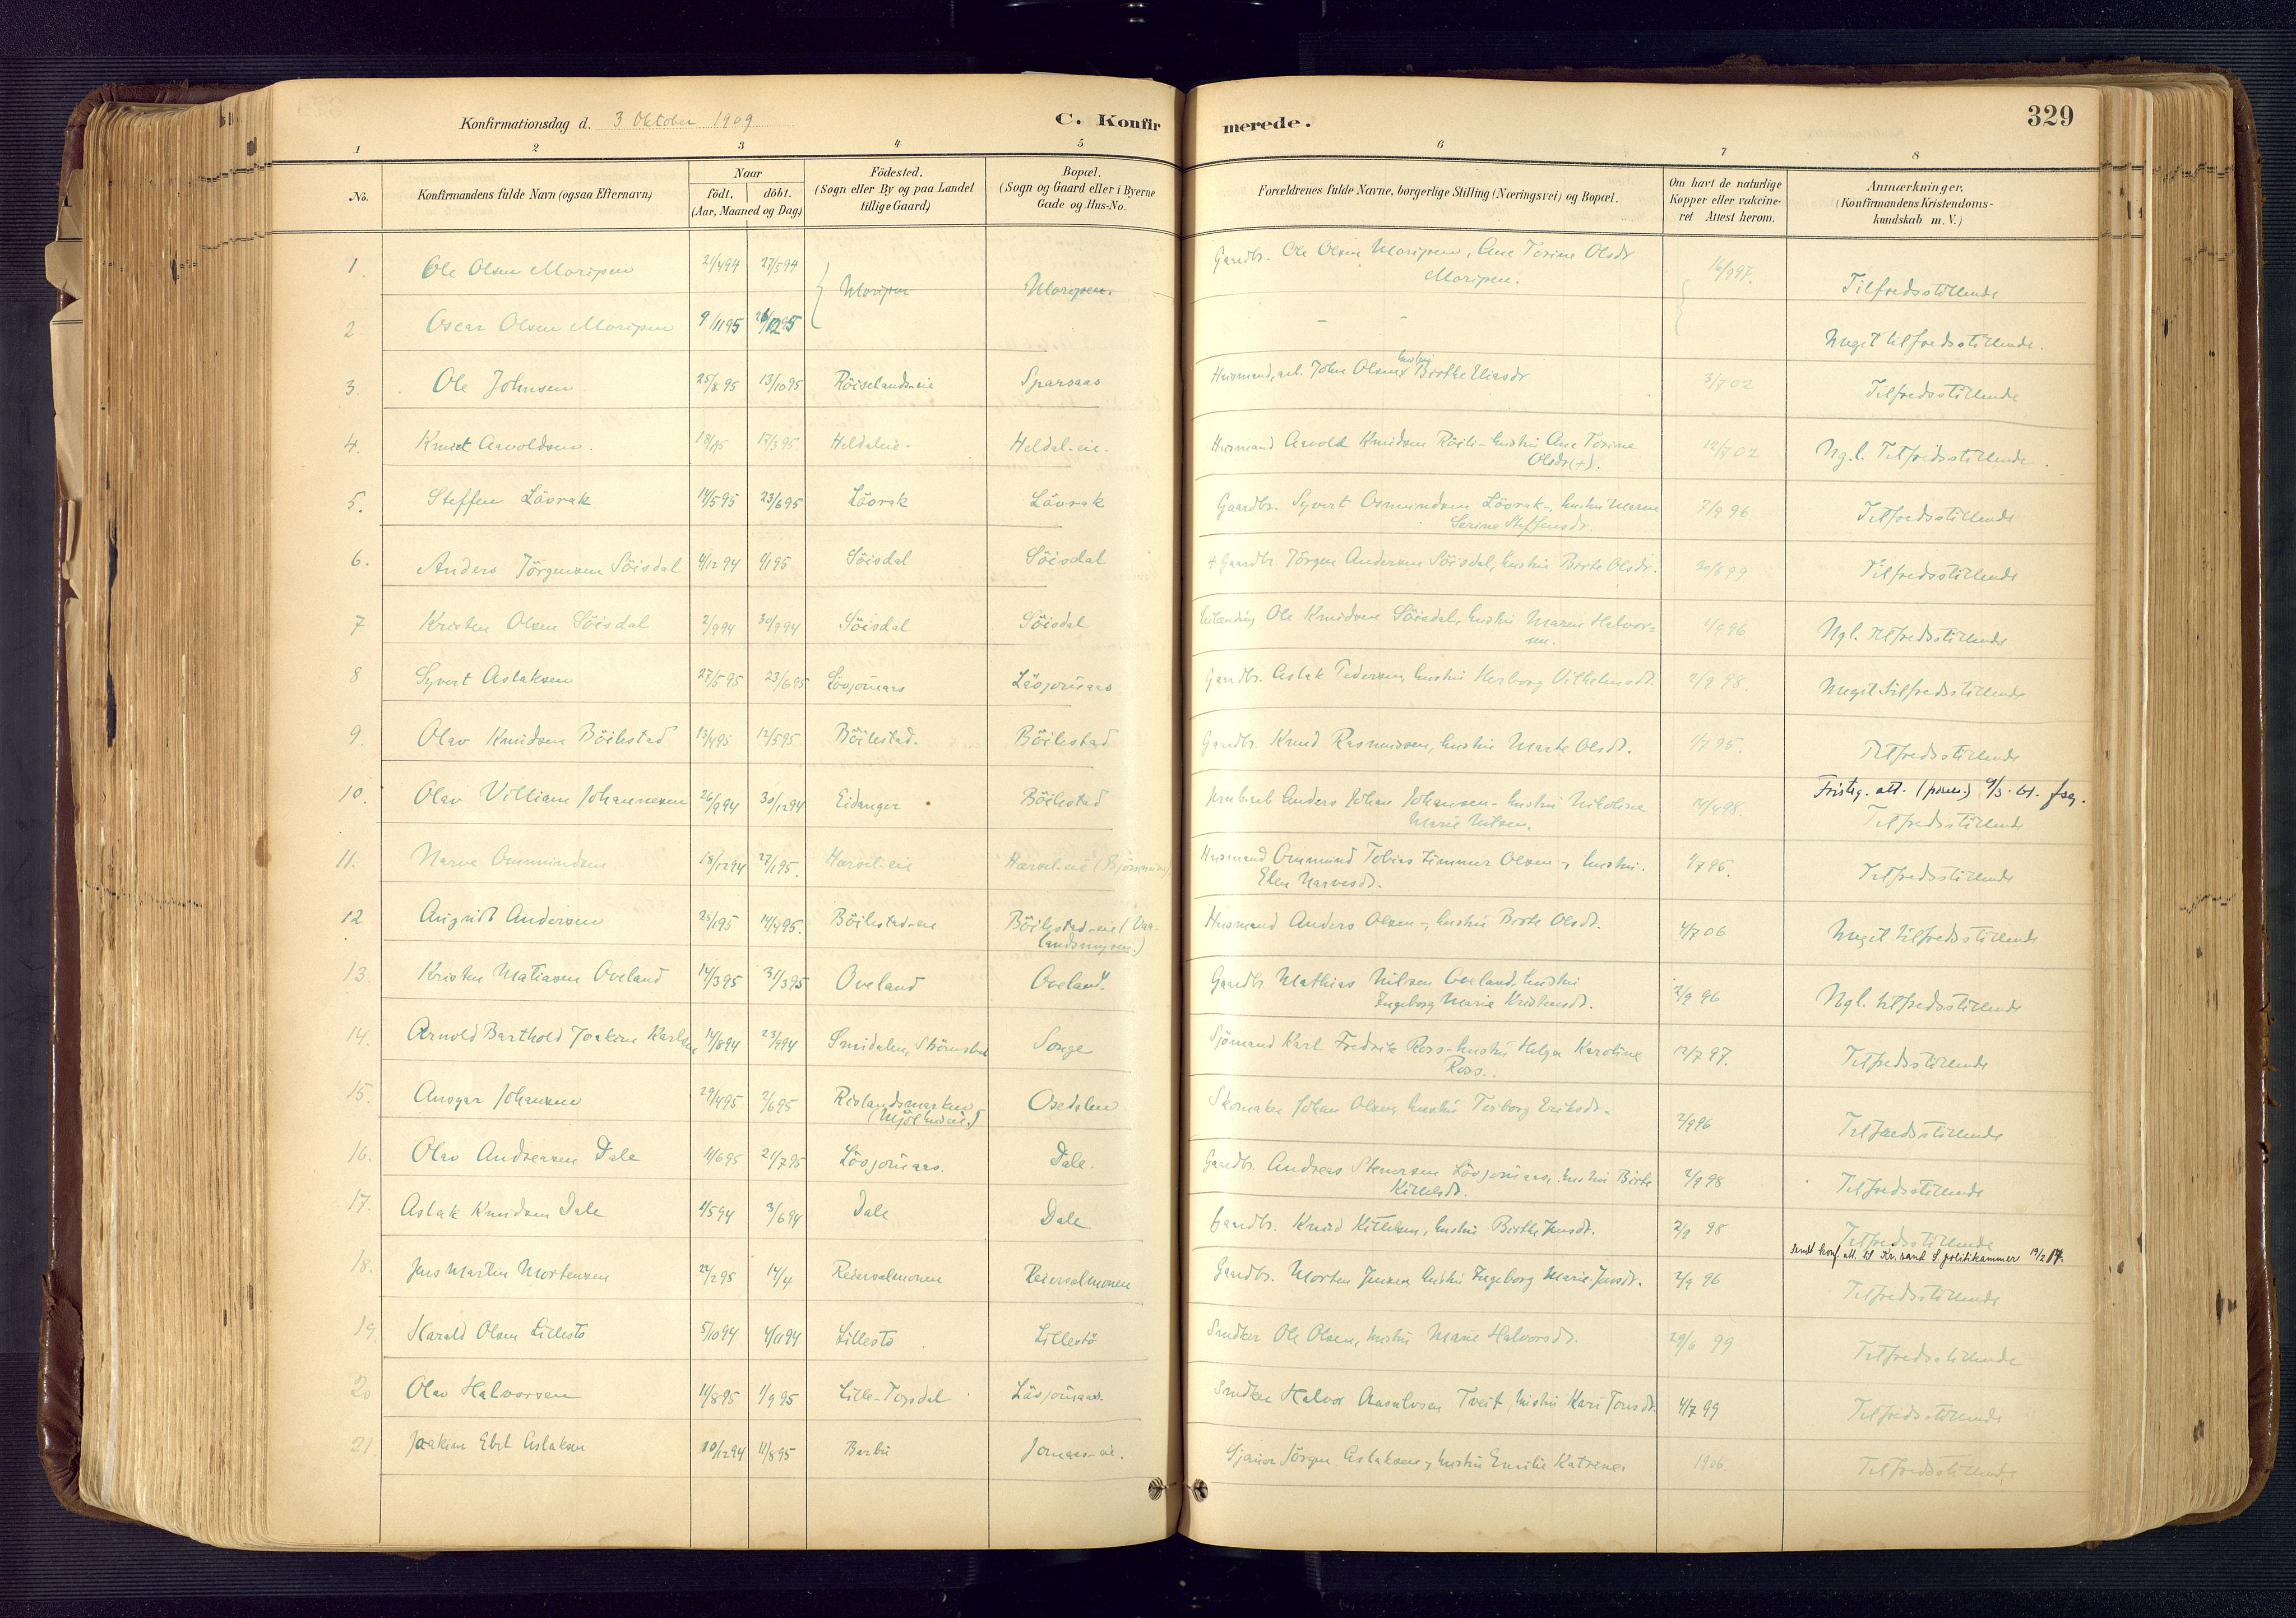 Konfirmationsdag d. 3 Oktober 1909 C. Konfirmerede. 329
1 2 3 4 5 6 7 8
No. Konfirmandens fulde Navn (ogsaa Efternavn) Naar födt. döbt. (Aar, Maaned og Dag) Födested. (Sogn eller By og paa Landet tillige Gaard) Bopæl. (Sogn og Gaard eller i Byerne Gade og Hus-No. Forældrenes fulde Navne, borgerlige Stilling (Næringsvei) og Bopæl. Om havt de naturlige Kopper eller vakcineret Attest herom. Anmærkninger, (Konfirmandens Kristendomskundskab m. V.)
1 Ole Olsen Moripen 21/4 94 27/5 94 Moripen Moripen. Gaardbr. Ole Olsen Moripen, Ane Torine Olsdr Moripen. 16/9 97. Tilfredsstillende
2. Oscar Olsen Moripen 9/11 95 26/12 95 - - Meget tilfredsstillende.
3. Ole Johnsen 25/8 95 13/10 95 Röiselands-eie Sparsaas Husmand, arb. John Olsen, hustru Birthe Eliasdr 3/7 02 Tilfredsstillende
4. Knut Aavoldsen. 17/3 95 Heldaleie. Heldal-eie. Husmand Aavold Knudsen Röili - hustru Ane Torine Olsdr (+). 12/7 02 Ng.l. Tilfredsstillende.
5. Steffen Lövrak 14/5 95 23/6 95 Lövrak Lövrak Gaardbr. Syvert Osmundsen Lövrak, hustru Maren Serine Steffensdr. 7/9 96 Tilfredsstillende
6. Anders Jörgensen Söisdal 4/12 94 1/1 95 Söisdal Söisdal + Gaardbr. Jörgen Andersen Söisdal, hustru Berte Olsdr. 30/6 99 Tilfredsstillende
7 Kristen Olsen Söisdal 2/9 94 30/9 94 Söisdal Söisdal Ole Knudsen Söisdal, hustru Maren Halvorsen. 1/9 96 Ngl. tilfredsstillende
8 Syvert Aslaksen 27/5 95 23/6 95 Lövjomaas Lövjomaas Gaardbr. Aslak Pedersen, hustru Herborg Vilhelmsdt. 2/9 98. Meget tilfredsstillende
9. Olav Knudsen Böilestad 13/4 95 12/5 95 Böilestad. Böilestad Gaardbr. Knud Rasmussen, hustru Marte Olsdt. 1/7 95. Tilfredsstillende
10. Olav Villiam Johannesen 26/9 94 30/12 94 Eidanger Böilestad Anders Johan Johansen - hustru Nikoline Marie Nilsen. 14/4 98. Tilfredsstillende
11. Narve Ommundsen 18/12 94 27/1 95. Hævel-eie Hævel-eie Husmand Ommund Tobias Zimmer Olsen, hustru. Elen Narvesdt. 1/7 95. Tilfredsstillende
12 August Andersen 25/1 95 14/4 95. Böilestad-eie Böilestad-eie (Vaalandsmyren.) Husmand Anders Olsen, hustru Birte Olsdt. 4/7 06 Meget tilfredsstillende
13. Kristen Matiasen Oveland 14/3 95 31/3 95 Oveland Oveland. Gaardbr. Mathias Nilsen Oveland, hustru Ingeborg Marie Kristensdt. 2/9 96 Ngl. tilfredsstillende
14. Arnold Barthold Joakim Karlsen 14/8 94 23/9 94 Smidalen, Songe Sjömand Karl Fredrik Ross - hustru Helga Karoline Ross. 12/7 97. Tilfredsstillende
15. Ansgar Johansen 29/4 95 2/6 95 Rislandsmarken Osedalen Skomaker Johan Olsen, hustru Torborg Eriksdt. 2/9 96 Tilfredsstillende
16. Olav Andreasen Dale 11/6 95 21/7 95 Lövjomaas. Dale. Gaardbr. Andreas Stenersen Lövjomaas, hustru Birte Kittelsdt. 2/9 98 Tilfredsstillende
17. Aslak Knudsen Dale 1/5 94 3/6 94 Dale Dale Gaardbr. Knud Kittelsen, hustru Birthe Jensdt. 2/9 98 Tilfredsstillende
18. Jens Martin Mortensen 24/2 95 14/4 Reiersölmonen Reiersölmonen Gaardbr. Morten Jensen, hustru Ingeborg Marie Jensdt. 2/9 96 sendt konf. att. til Kr.sand S politikammer 19/2 17. Tilfredsstillende
19. Harald Olsen Lillestö 5/10 94 4/11 94 Lillestö Lillestö Snedker Ole Olsen, hustru Marie Halvorsdt. 29/6 99 Tilfredsstillende
20 Olav Halvorsen 11/8 95 1/9 95 Lille-Topdal Lövjomaas. Snedker Halvor Aasulvsen Tveit, hustru Kari Jonsdt. 4/7 99 Tilfredsstillende
21. Joakim Ebel Aslaksen 10/12 94 11/8 95 Barbu Jomaas-eie. Jörgen Aslaksen, hustru Emilie Katrine. 1906. Tilfredsstillende